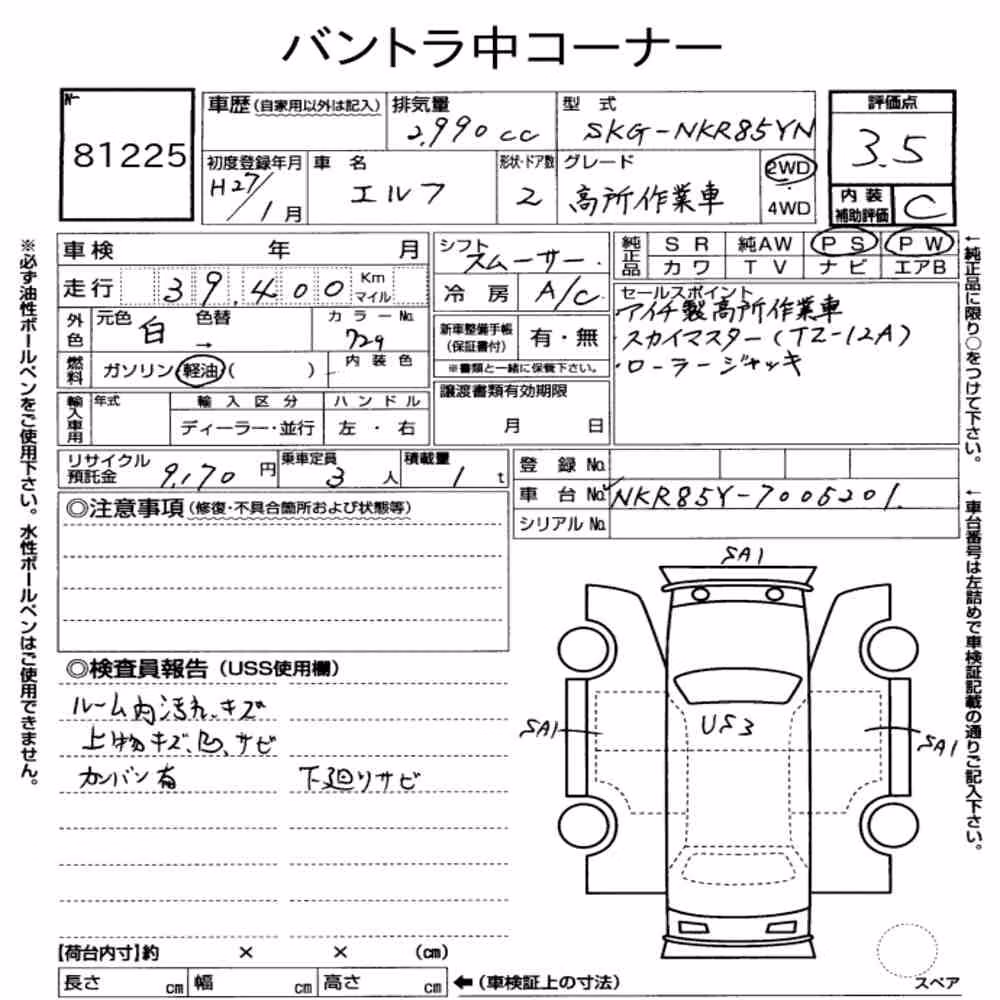 バントラ中コーナー
№
81225
車歴（自家用以外は記入）
排気量
2,990cc
型式
SKG-NKR85YN
評価点
3.5
初度登録年月
H27/1月
車名
エルフ
形状・ドア数
2
グレード
高所作業車
2WD
4WD
内装
補助評価
C
車検 年 月
シフト
スムーサー.
純正品
SR 純AW PS PW
カワ TV ナビ エアB
走行 39,400 Km
マイル
冷房 A/C
セールスポイント
アイチ製高所作業車
・スカイマスター(TZ-12A)
・ローラージャッキ
外色
元色 白 色替 →
カラーNo.
729
新車整備手帳
（保証書付）
有・無
※書類と一緒に保管下さい。
燃料
ガソリン・軽油・( )
内装色
譲渡書類有効期限
月 日
輸入車用
年式 輸入区分 ハンドル
ディーラー・並行 左・右
リサイクル
預託金
9,170円
乗車定員
3人
積載量
1t
登録No.
車台No. NKR85Y-7005201.
シリアルNo.
◎注意事項（修復・不具合箇所および状態等）
◎検査員報告（USS使用欄）
ルーム内汚れ、キズ
上物キズ、凹、サビ
カンバン有 下廻りサビ
SA1
SA1
US3
SA1
【荷台内寸】約 × × (cm)
長さ cm 幅 cm 高さ cm ←（車検証上の寸法）
スペア
※必ず油性ボールペンをご使用下さい。水性ボールペンはご使用できません。
←純正品に限り○をつけて下さい。
←車台番号は左詰めで車検証記載の通りご記入下さい。